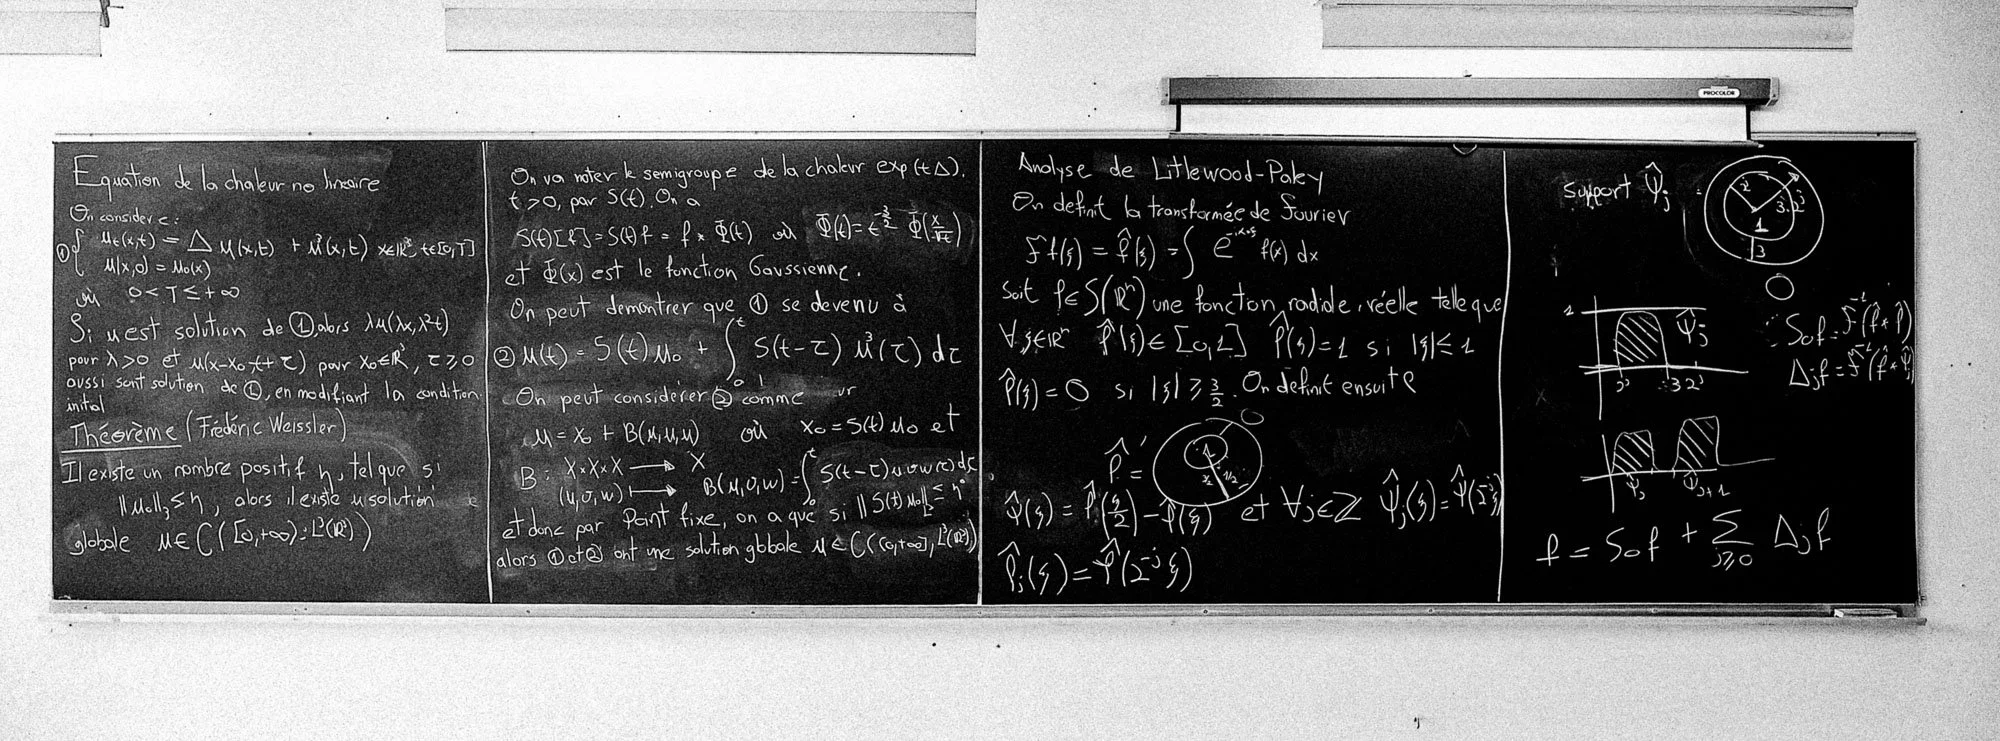 PROCOLOR
Equation de la chaleur no lineaire
On considere:
① { u_t(x,t) = Δ u(x,t) + u³(x,t) x∈ℝ³, t∈[0,T]
u(x,0) = u₀(x)
où 0 < T ≤ +∞
Si u est solution de ①, alors λu(λx, λ²t)
pour λ>0 et u(x-x₀, t+τ) pour x₀∈ℝ³, τ≥0
aussi sont solution de ①, en modifiant la condition
initial
Théorème (Frédéric Weissler)
Il existe un nombre positif η, tel que si
‖u₀‖₃ ≤ η, alors il existe u solution
globale u∈C([0,+∞): L³(ℝ³))
On va noter le semigroupe de la chaleur exp(tΔ).
t>0, par S(t). On a
S(t)[f] = S(t)f = f * Φ(t) où Φ(t) = t^{-3/2} Φ(x/√t)
et Φ(x) est le fonction Gaussienne.
On peut demontrer que ① se devenu à
② u(t) = S(t)u₀ + ∫₀ᵗ S(t-τ) u³(τ) dτ
On peut considérer ② comme
u = x₀ + B(u,u,u) où x₀ = S(t)u₀ et
B: X×X×X ⟶ X
(u,v,w) ⟼ B(u,v,w) = ∫₀ᵗ S(t-τ)uvw(τ)dτ
et donc par Point fixe, on a que si ‖S(t)u₀‖ ≤ η
alors ① et ② ont une solution globale u∈C([0,+∞], L³(ℝ³))
Analyse de Litlewood-Paley
On definit la transformée de Fourier
Ff(ξ) = f̂(ξ) = ∫ e^{-ix·ξ} f(x) dx
Soit φ∈S(ℝⁿ) une fonction radiale, réelle telle que
∀ξ∈ℝⁿ φ̂(ξ)∈[0,1] φ̂(ξ)=1 si |ξ|≤1
φ̂(ξ)=0 si |ξ| ≥ 3/2. On definit ensuite
φ̂ =
ψ̂(ξ) = φ̂(ξ/2) - φ̂(ξ) et ∀j∈ℤ ψ̂_j(ξ) = ψ̂(2^{-j}ξ)
φ̂_j(ξ) = φ̂(2^{-j}ξ)
support ψ̂_j =
2ʲ
3·2ʲ
1
3
0
1
ψ̂_j
2ʲ
3·2ʲ
S₀f = F⁻¹(f̂ * φ̂)
Δ_jf = F⁻¹(f̂ * ψ̂_j)
ψ_j ψ_{j+1}
f = S₀f + Σ_{j≥0} Δ_j f